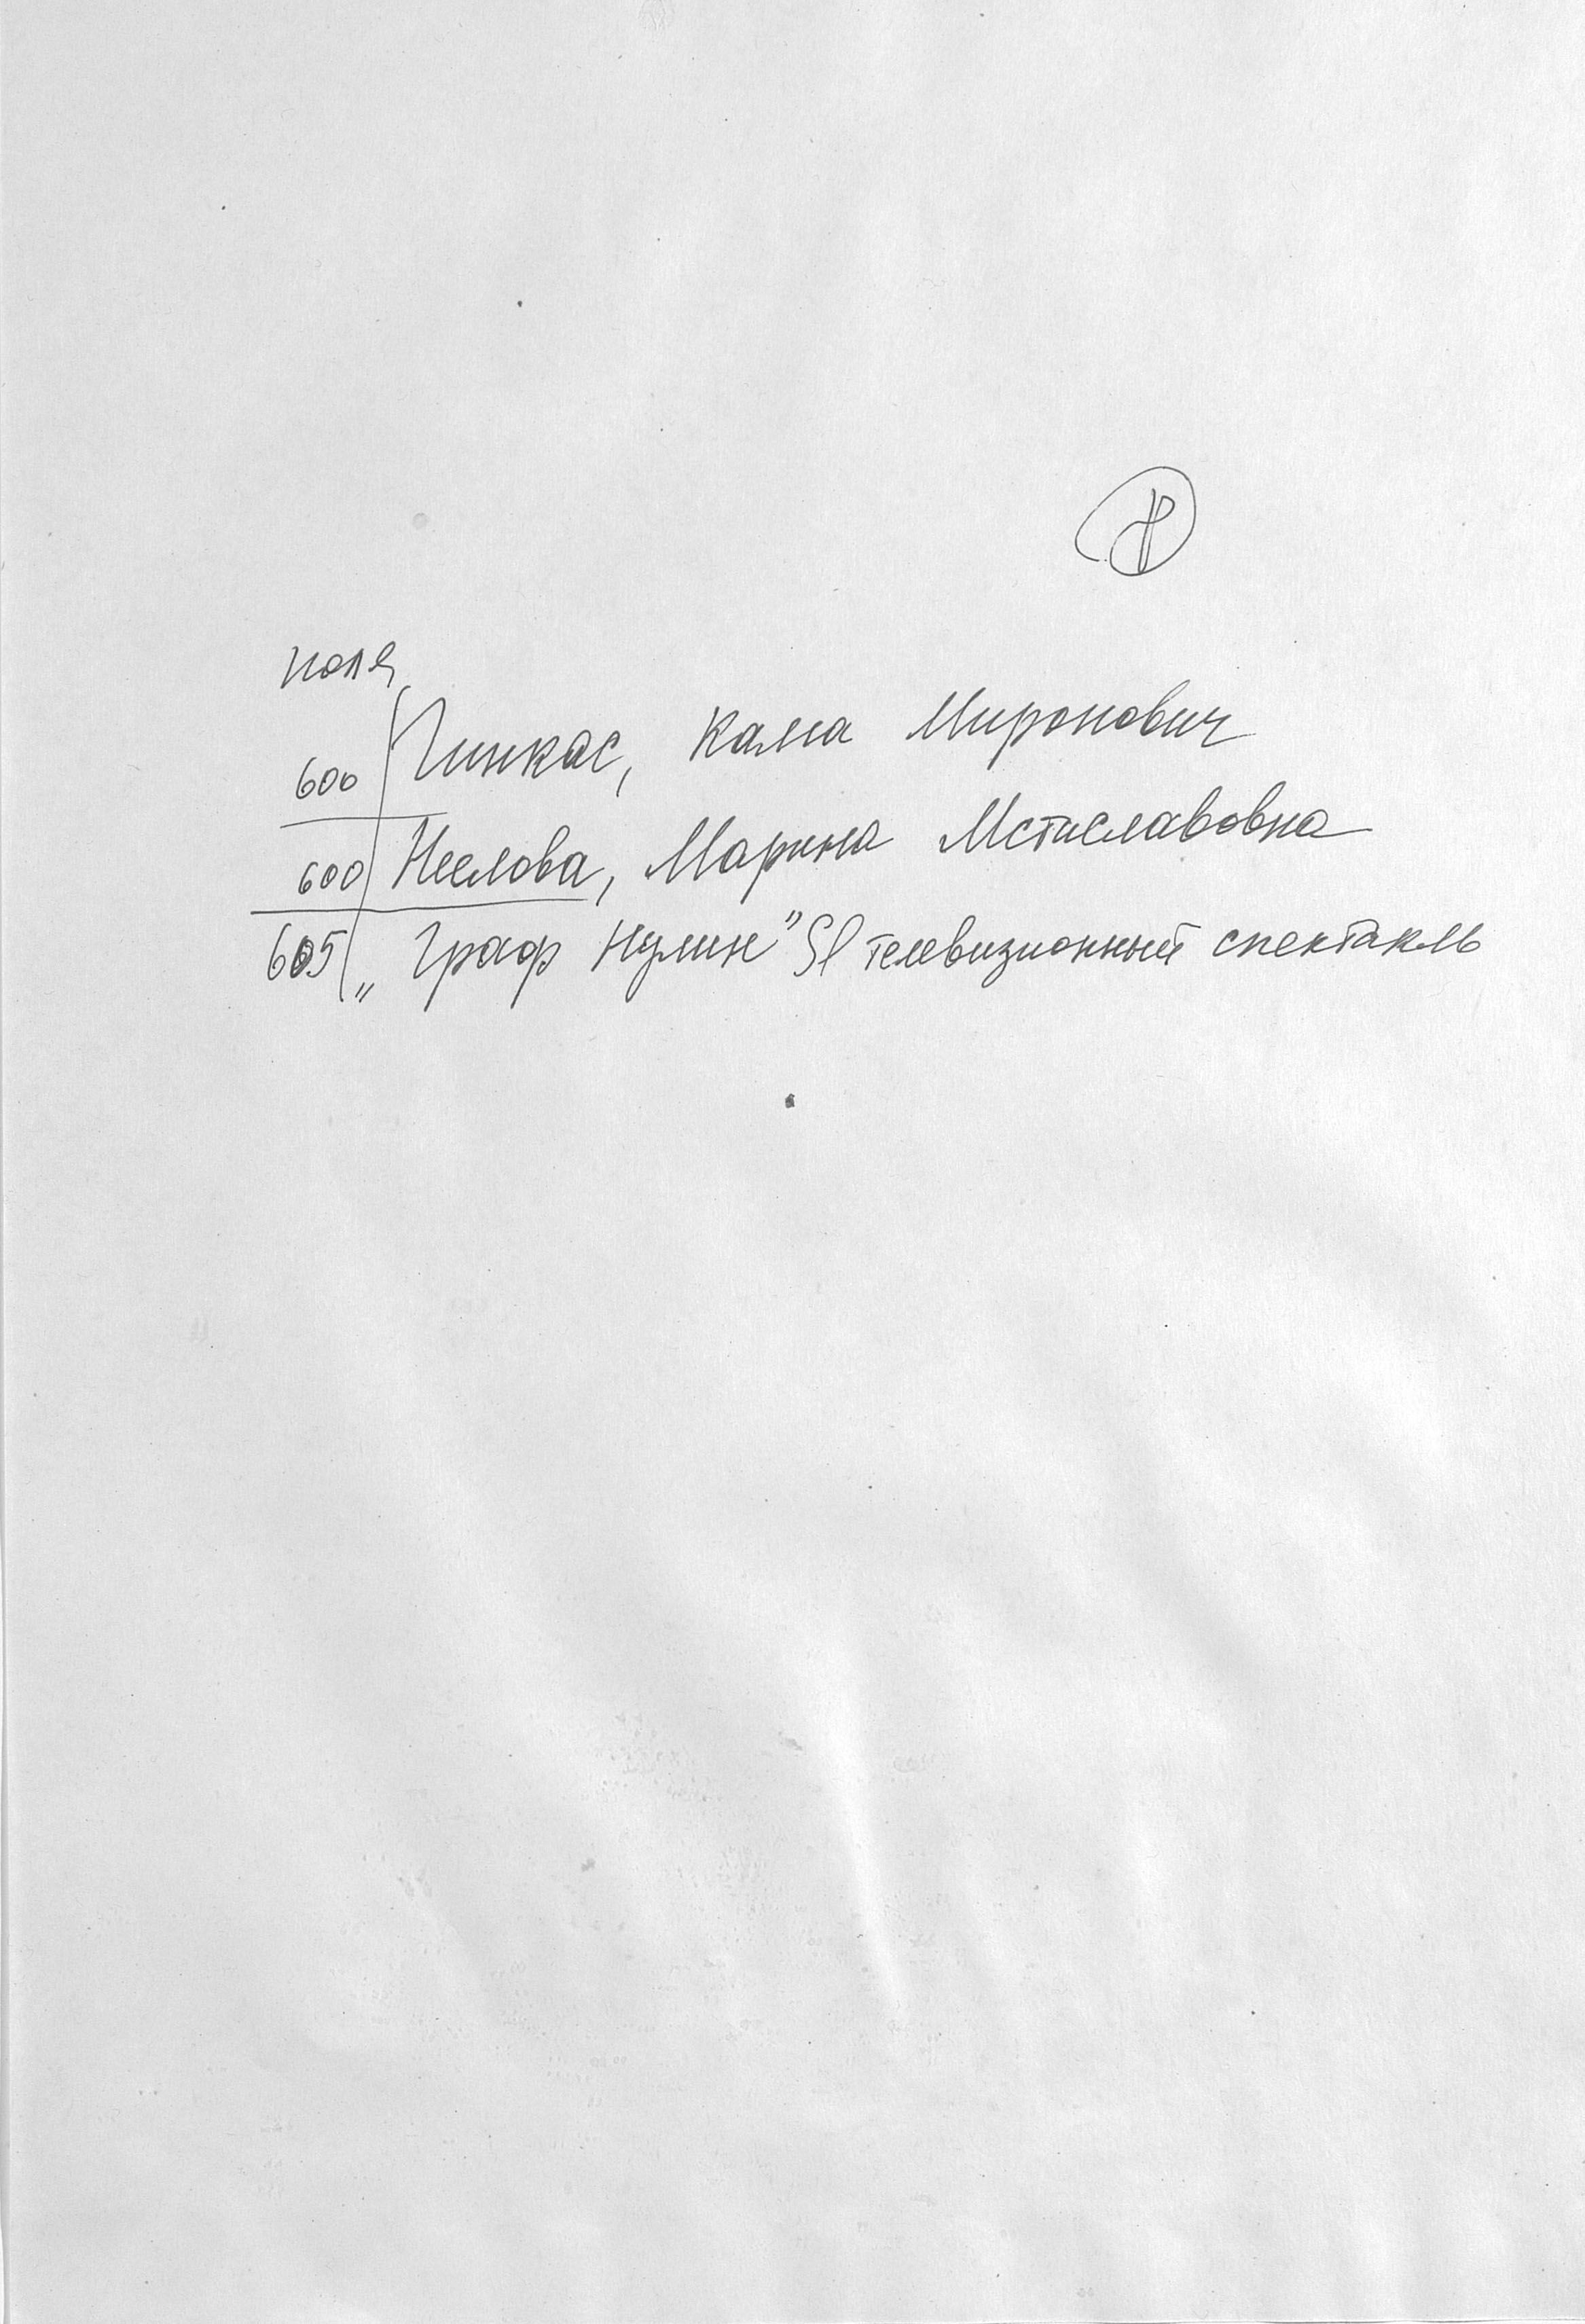 8
поля
600 Гинкас, Кама Миронович
600 Неелова, Марина Мстиславовна
605 „Граф Нулин” Sl телевизионный спектакль